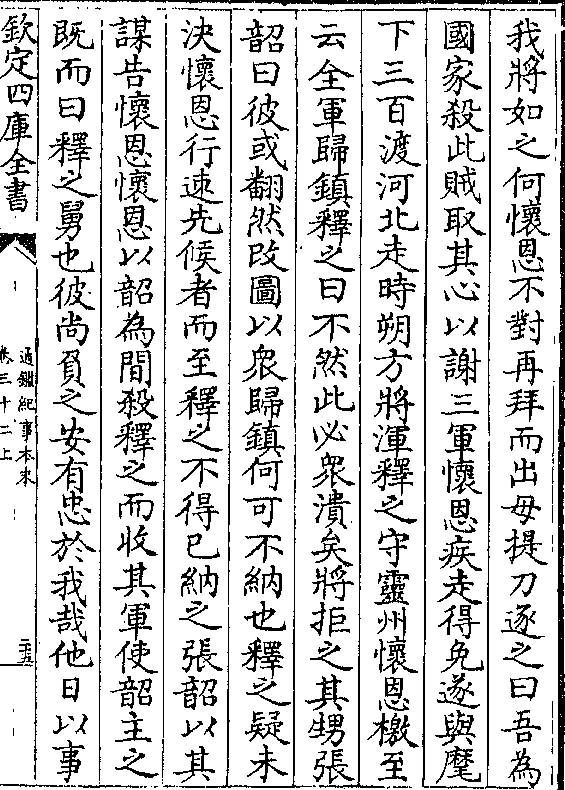 我將如之何懷恩不對再拜而出母提刀逐之曰吾為
國家殺此賊取其心以謝三軍懷恩疾走得免遂與麾
下三百渡河北走時朔方將渾釋之守靈州懷恩檄至
云全軍歸鎮釋之曰不然此必衆潰矣將拒之其甥張
韶曰彼或翻然改圖以衆歸鎮何可不納也釋之疑未
決懷恩行速先候者而至釋之不得已納之張韶以其
謀告懷恩懷恩以韶為間殺釋之而收其軍使韶主之
既而曰釋之舅也彼尚負之安有忠於我哉他日以事
欽定四庫全書
通鑑紀事本末
卷三十二上
二十五